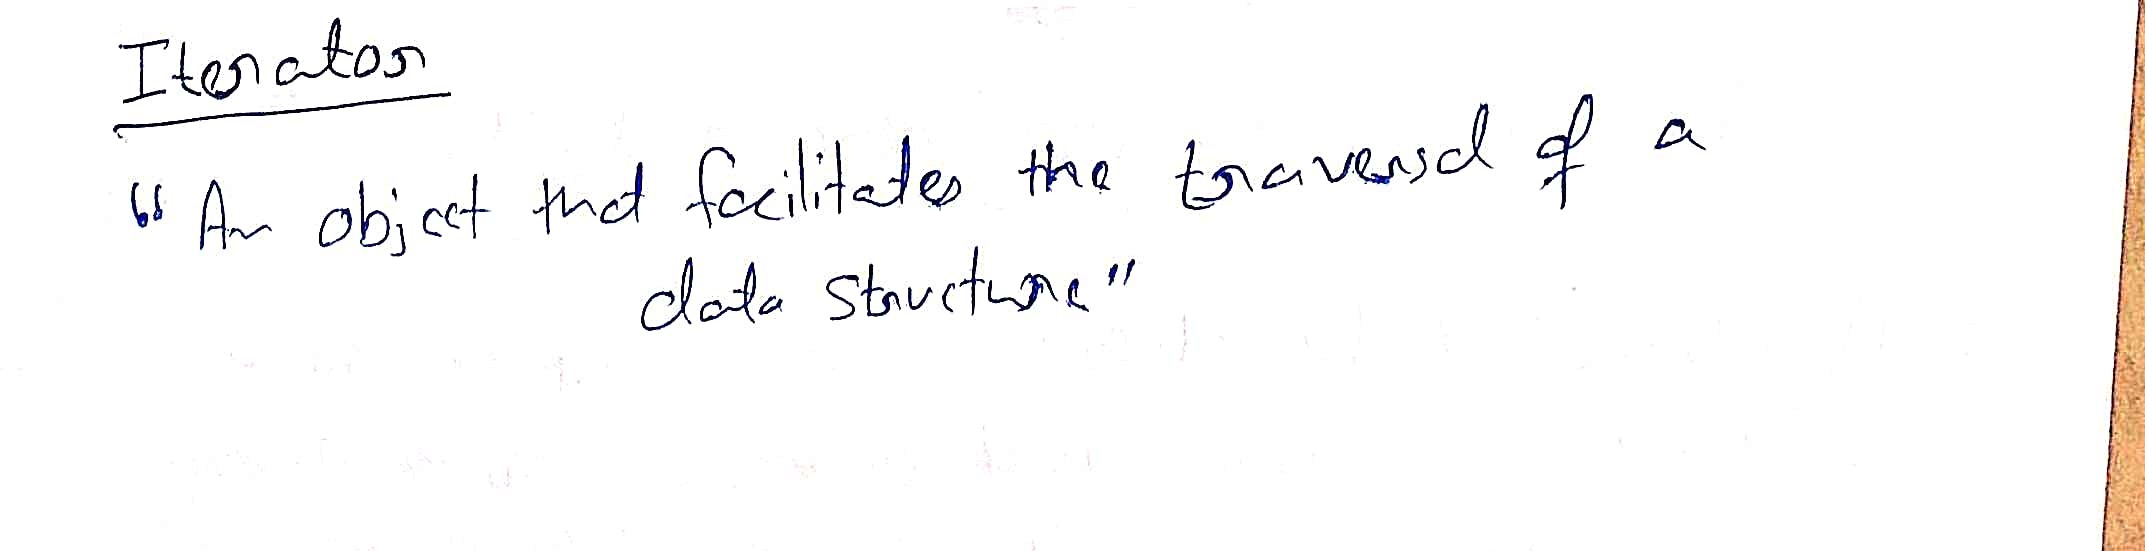 Iterator
"An object that facilitates the traversal of a
data structure"